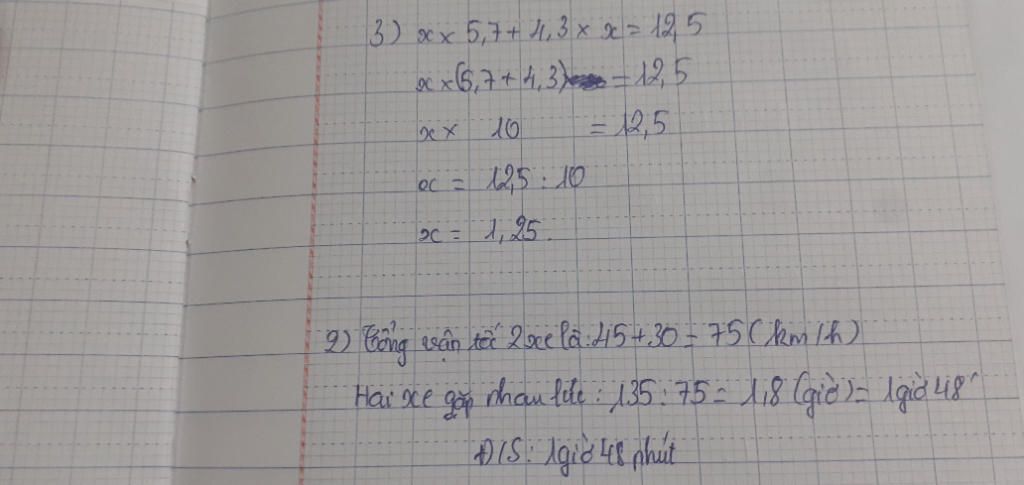 3) x × 5,7 + 4,3 × x = 12,5
x × (5,7 + 4,3) = 12,5
x × 10 = 12,5
x = 12,5 : 10
x = 1,25.
2) Tổng vận tốc 2 xe là : 45 + 30 = 75 (km/h)
Hai xe gặp nhau lúc : 135 : 75 = 1,8 (giờ) = 1 giờ 48'
Đ/S : 1 giờ 48 phút